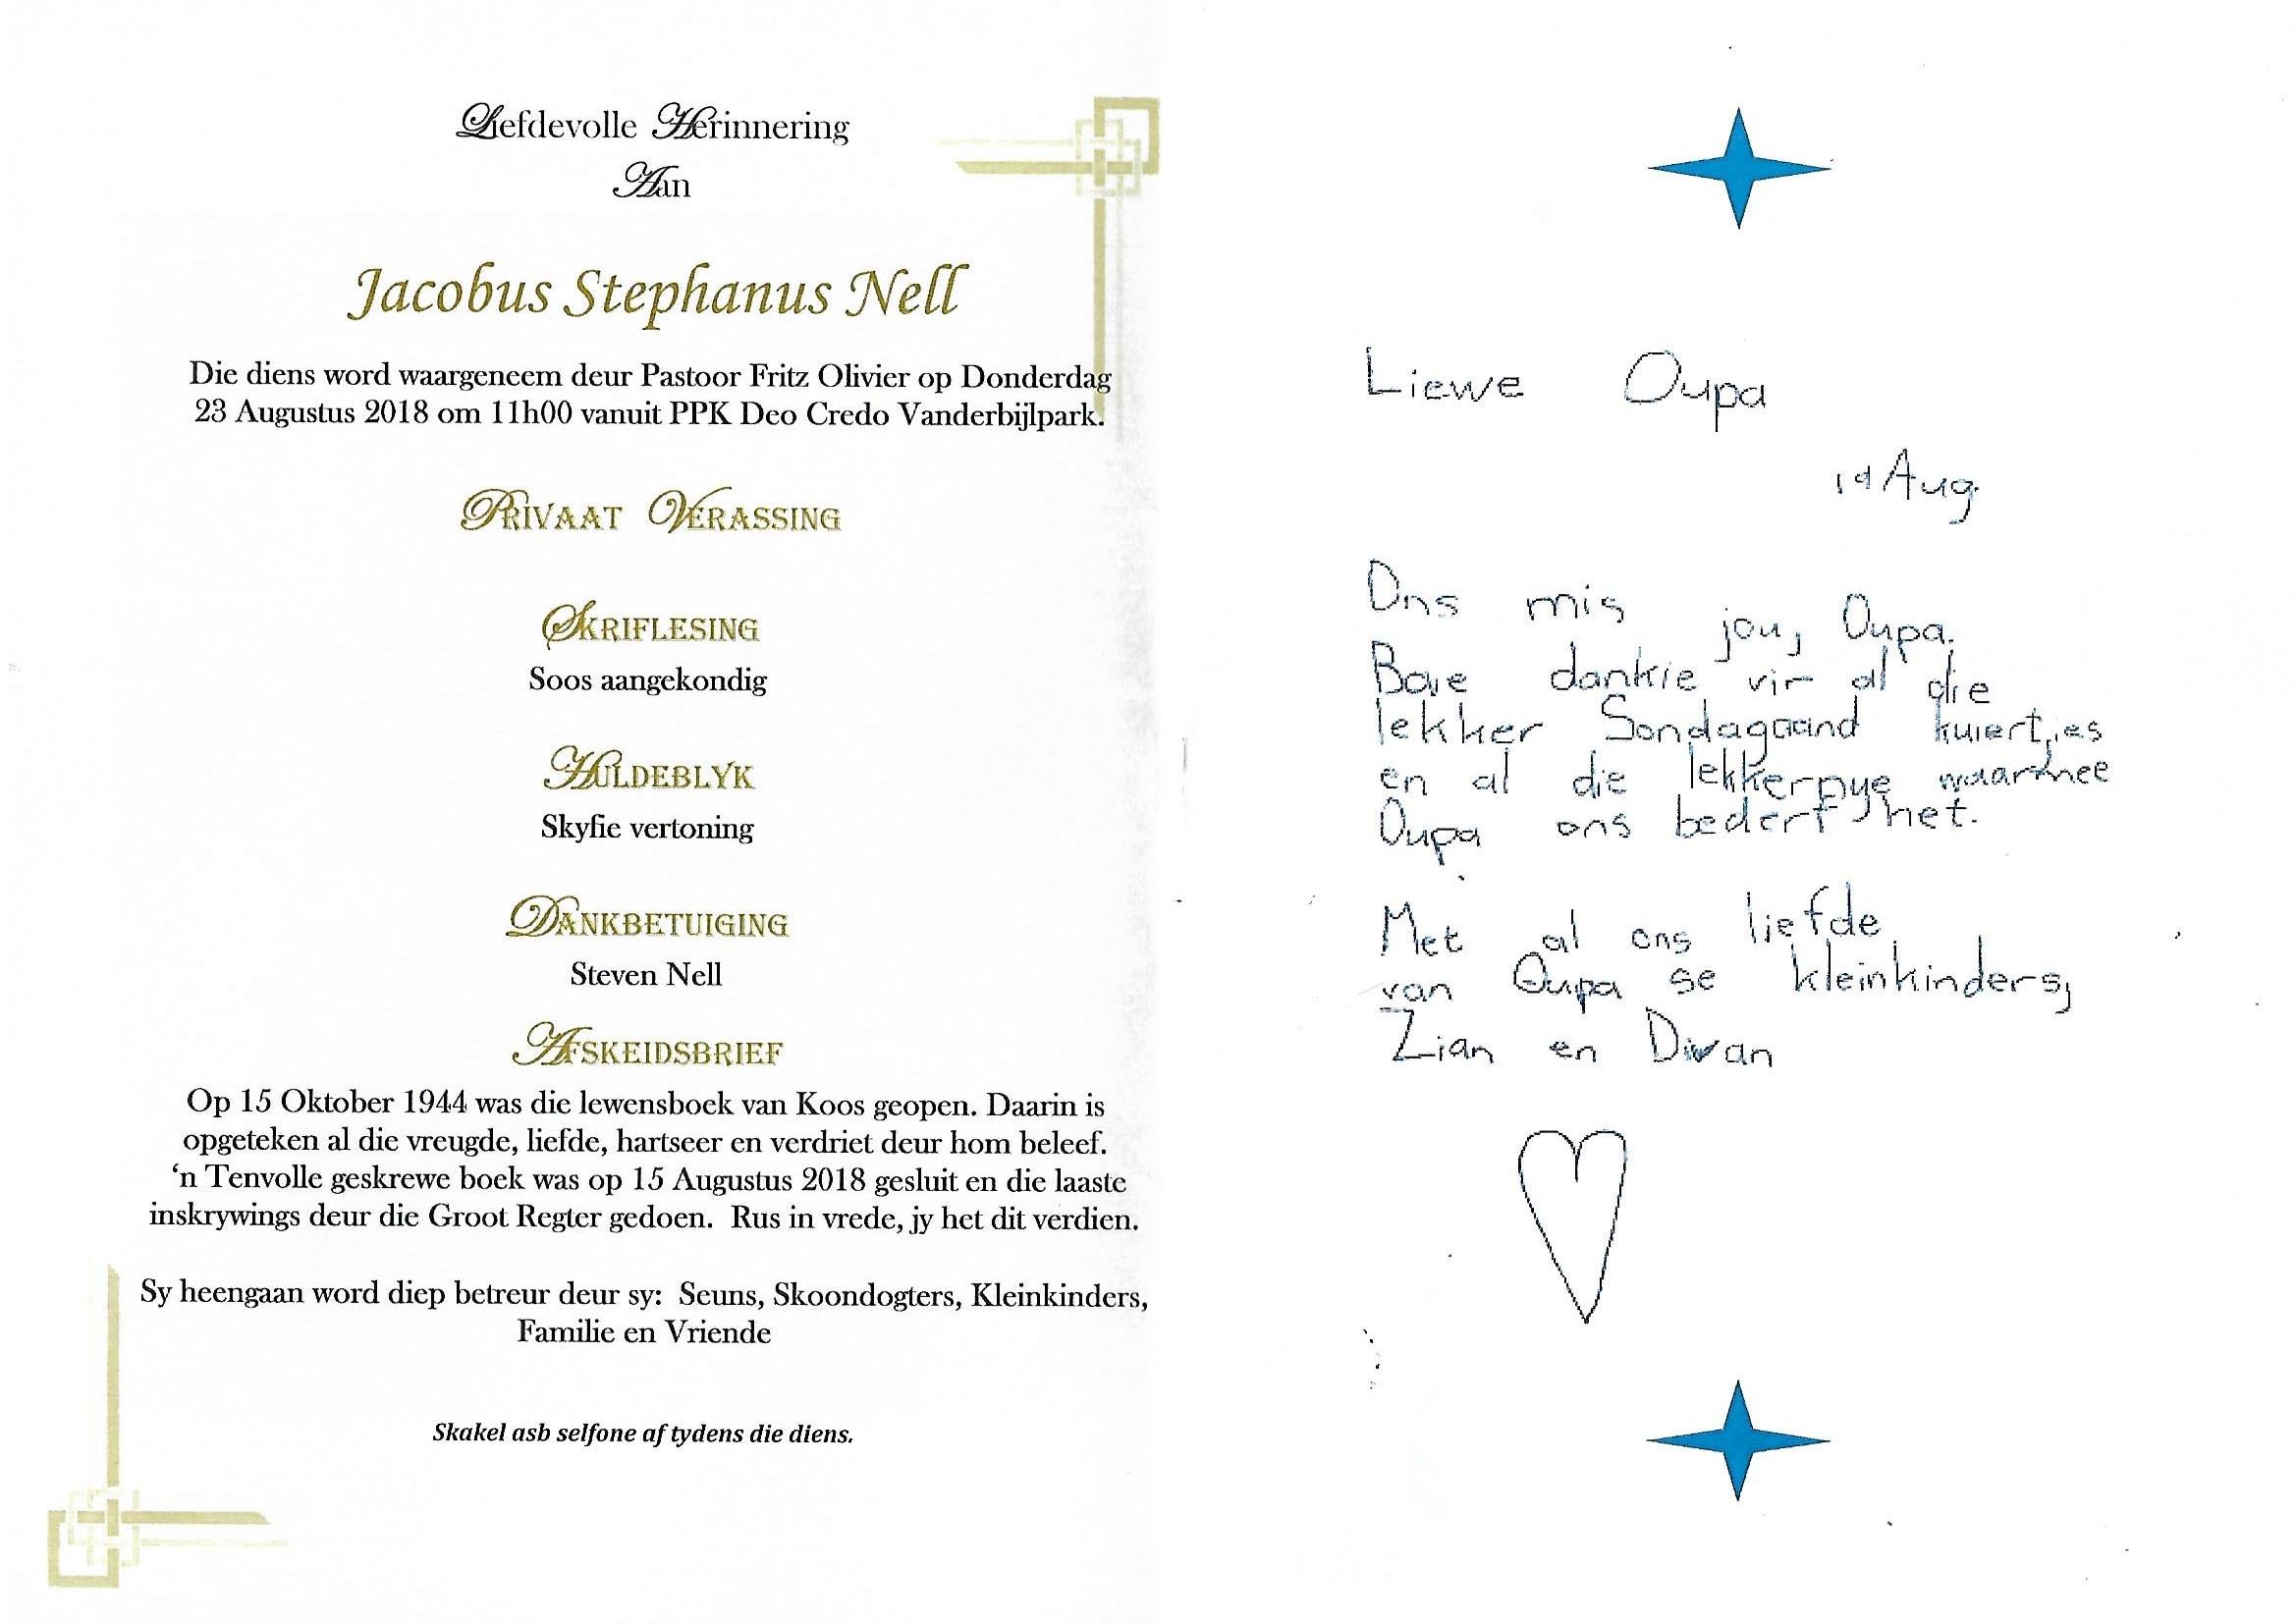 Liefdevolle Herinnering
Aan
Jacobus Stephanus Nell
Die diens word waargeneem deur Pastoor Fritz Olivier op Donderdag
23 Augustus 2018 om 11h00 vanuit PPK Deo Credo Vanderbijlpark.
PRIVAAT VERASSING
SKRIFLESING
Soos aangekondig
HULDEBLYK
Skyfie vertoning
DANKBETUIGING
Steven Nell
AFSKEIDSBRIEF
Op 15 Oktober 1944 was die lewensboek van Koos geopen. Daarin is
opgeteken al die vreugde, liefde, hartseer en verdriet deur hom beleef.
‘n Tenvolle geskrewe boek was op 15 Augustus 2018 gesluit en die laaste
inskrywings deur die Groot Regter gedoen. Rus in vrede, jy het dit verdien.
Sy heengaan word diep betreur deur sy: Seuns, Skoondogters, Kleinkinders,
Familie en Vriende
Skakel asb selfone af tydens die diens.
Liewe Oupa
Aug
Ons mis jou, Oupa.
Baie dankie vir al die
lekker Sondagaand kuiertjies
en al die lekkernye waarmee
Oupa ons bederf het.
Met al ons liefde
van Oupa se kleinkinders,
Zian en Divan